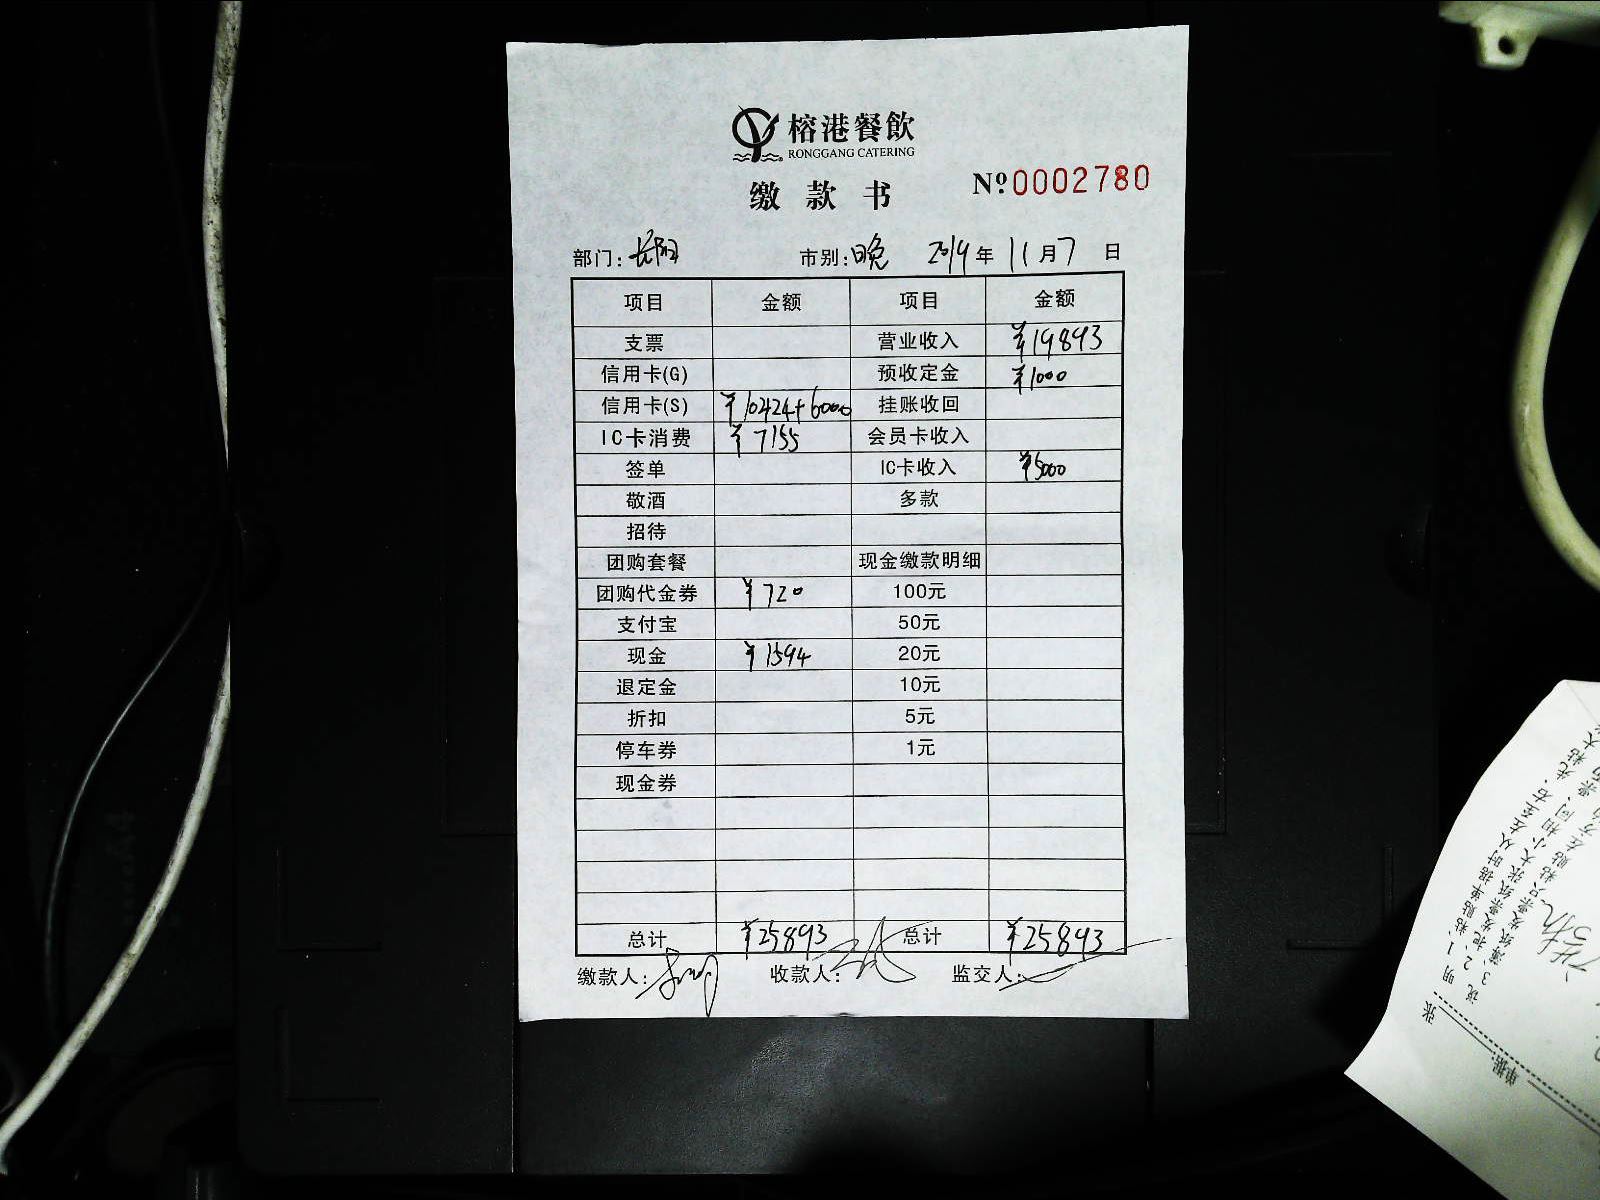 榕港餐飲
RONGGANG CATERING
缴款书
№0002780
部门:长阳 市别:晚 2019年11月7日
项目 金额 项目 金额
支票 营业收入 ¥19893
信用卡(G) 预收定金 ¥1000
信用卡(S) ¥10424+6000 挂账收回
IC卡消费 ¥7155 会员卡收入
签单 IC卡收入 ¥5000
敬酒 多款
招待
团购套餐 现金缴款明细
团购代金券 ¥720 100元
支付宝 50元
现金 ¥1594 20元
退定金 10元
折扣 5元
停车券 1元
现金券
总计 ¥25893 总计 ¥25893
缴款人: 收款人: 监交人:
说明
1、粘贴单据时从左至右,
张
单据: